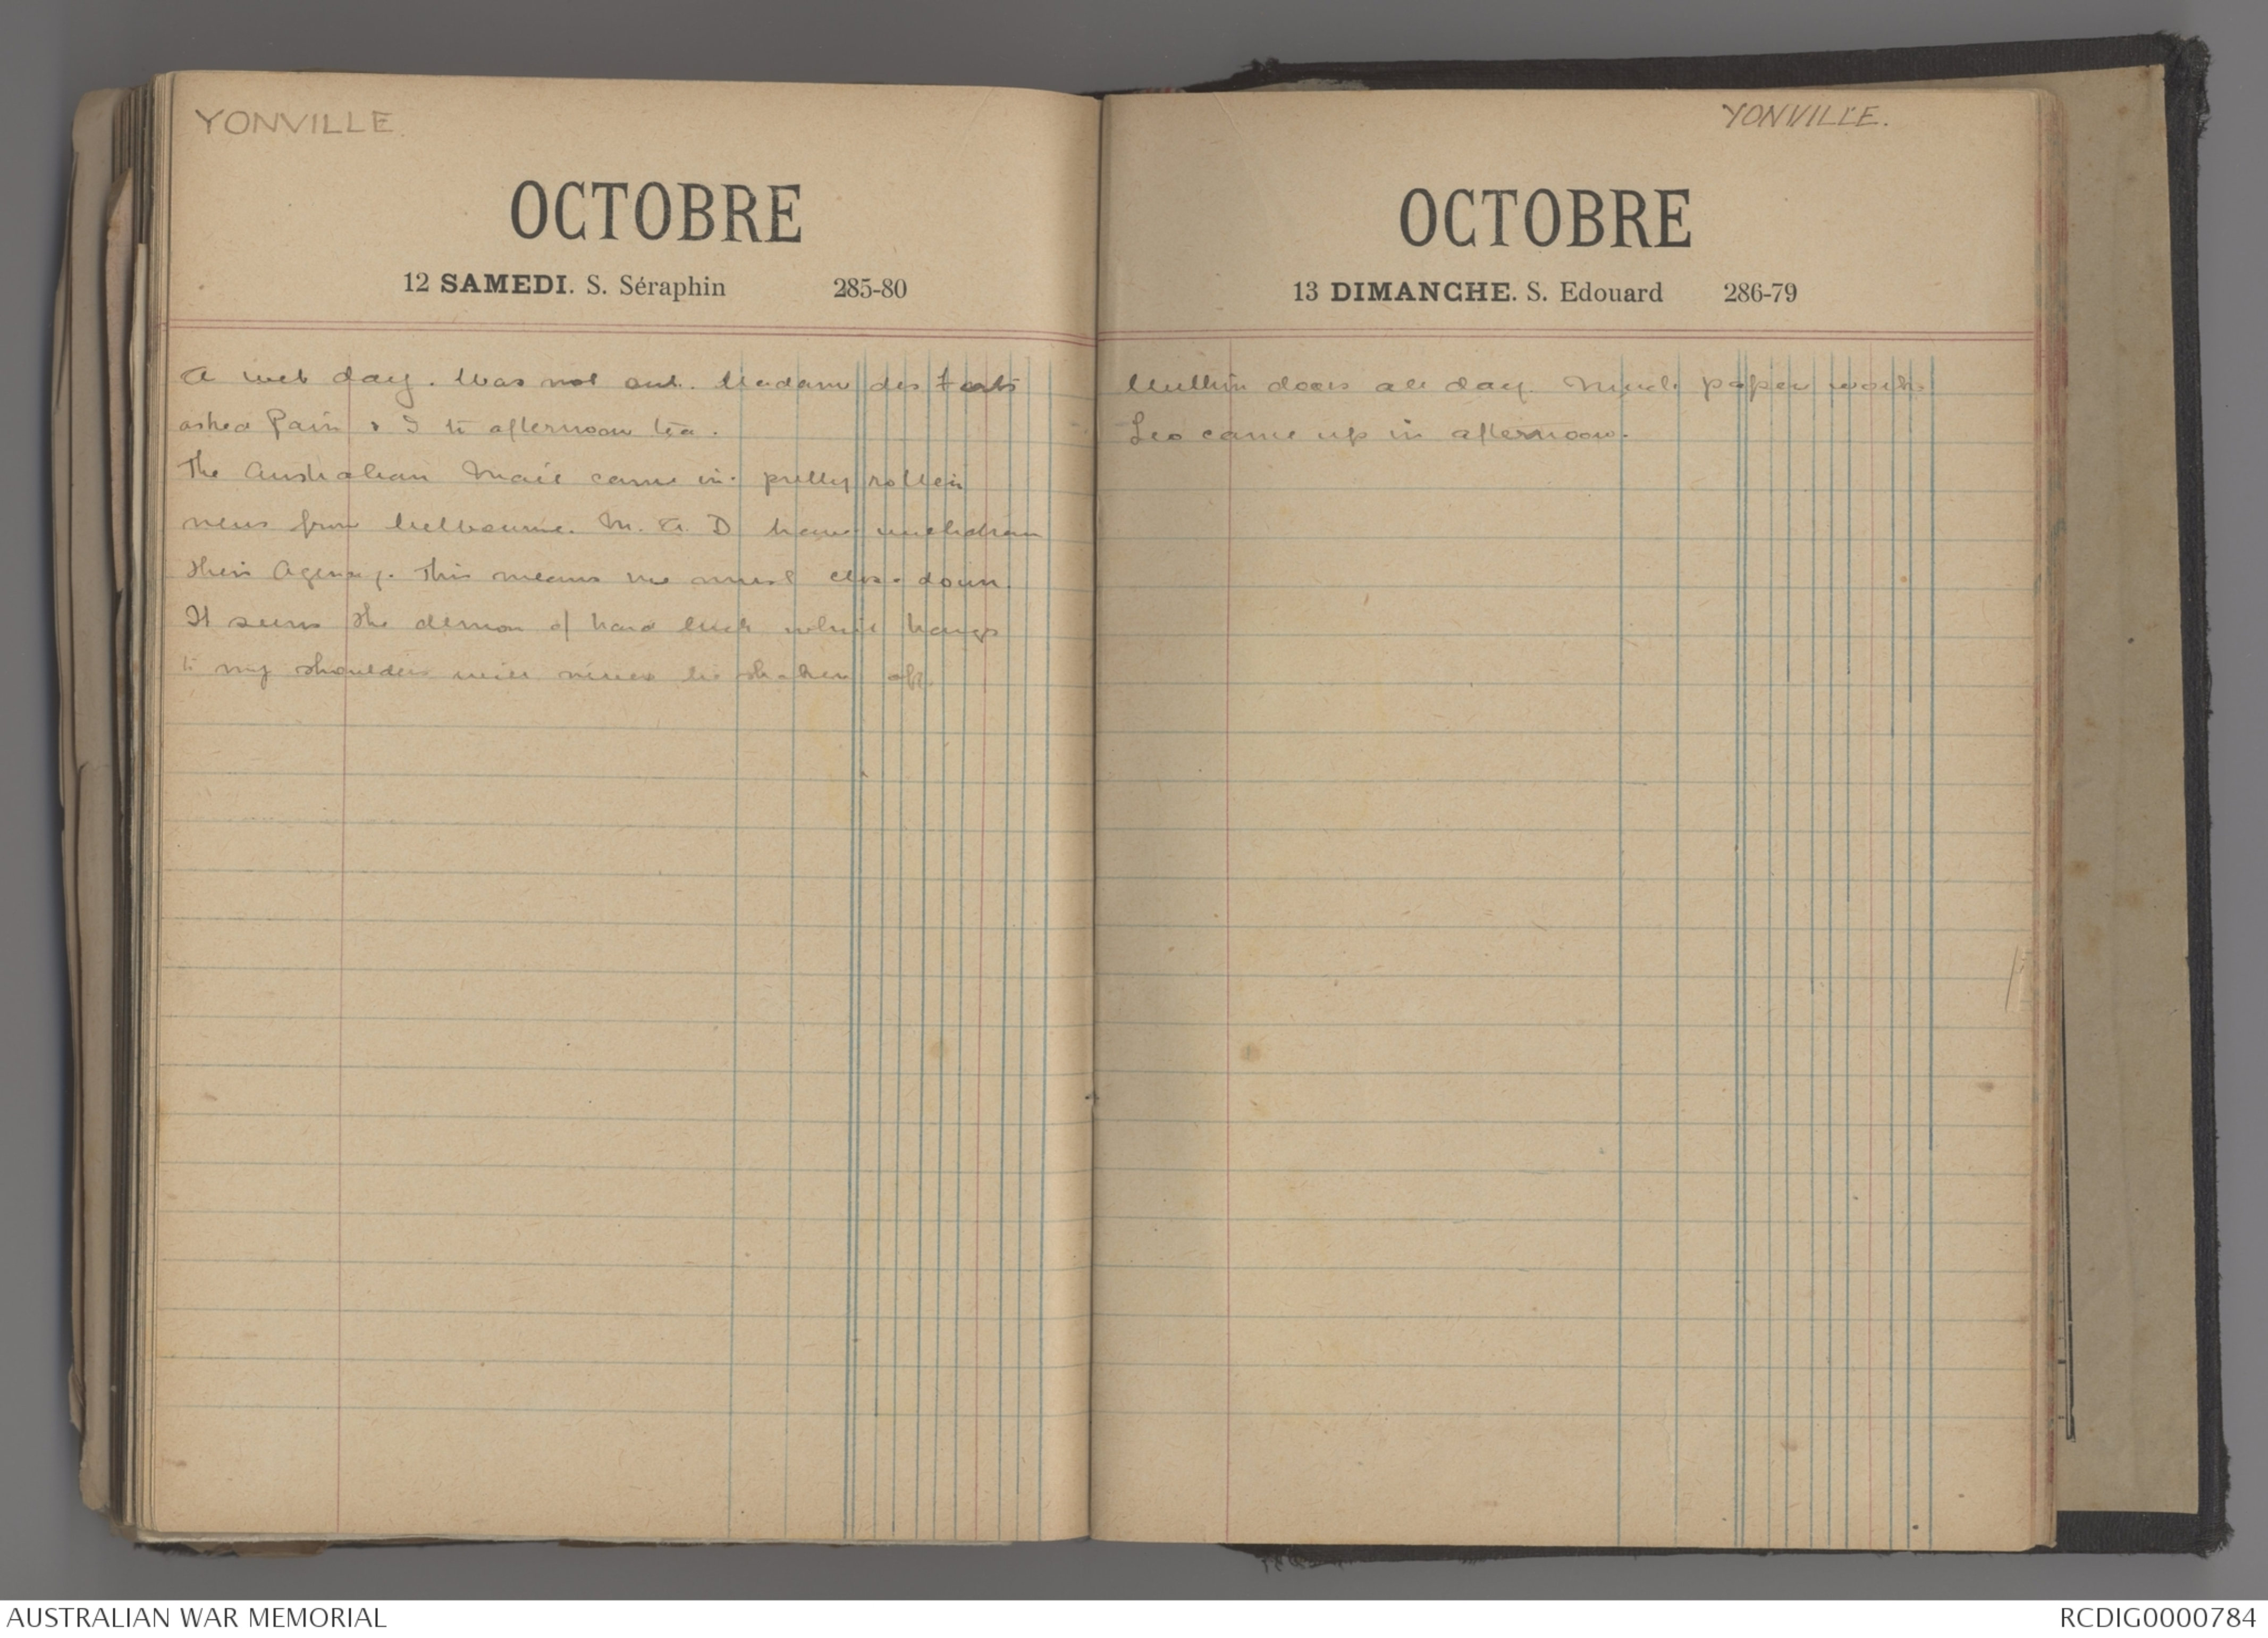 YONVILLE.
OCTOBRE
12 SAMEDI. S. Séraphin 285-80
A wet day. Was not out. Madame des Forts
asked Pain & I to afternoon tea.
The Australian Mail came in. pretty rotten
news from Melbourne. M. & D have withdrawn
their Agency. This means we must close down.
It seems the demon of hard luck which hangs
to my shoulders will never be shaken off.
YONVILLE.
OCTOBRE
13 DIMANCHE. S. Edouard 286-79
Within doors all day. Much paper work.
Leo came up in afternoon.
AUSTRALIAN WAR MEMORIAL
RCDIG0000784